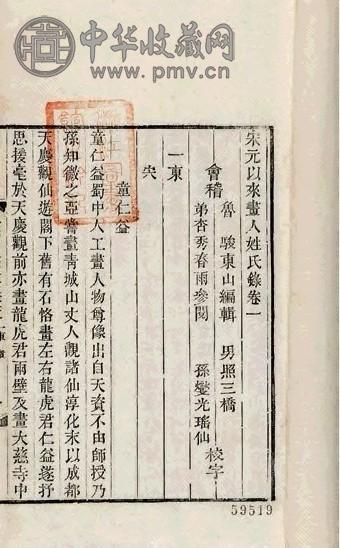 中华收藏网
www.pmv.cn
宋元以來畫人姓氏錄卷一
會稽 魯駿東山編輯 男照三橋
弟杏秀春雨參閱 孫燮光瑤仙 校字
一東
宋
童仁益
童仁益蜀中人工畫人物尊像出自天資不由師授乃
孫知微之亞嘗畫青城山丈人觀諸仙淳化末以成都
天慶觀仙遊閣下舊有石恪畫左右龍虎君仁益遂抒
思援毫於天慶觀前亦畫龍虎君兩壁及畫大慈寺中
59519